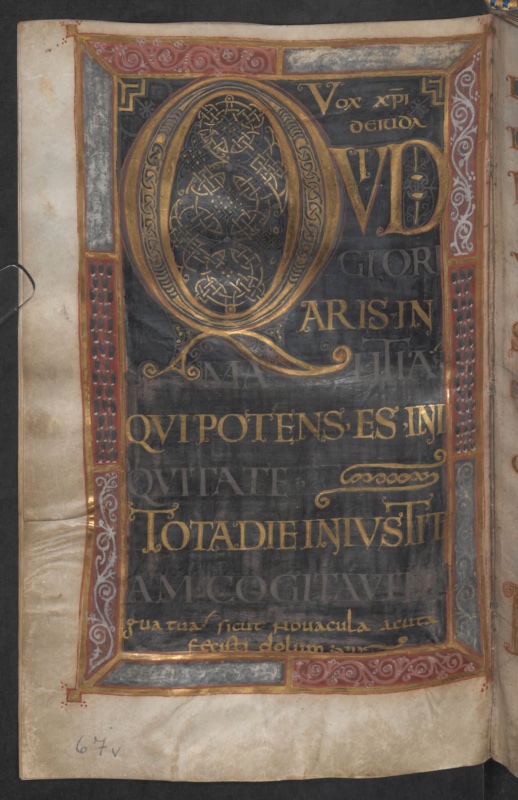 Vox xp̄i
deiuda
QUID
GLORI
ARIS IN
MALITIA·
QVI POTENS· ES· INI
QVITATE·
TOTA DIE INIVSTIT
AM COGITAVIT
gua tua· sicut novacula acuta
fecisti dolum
67v